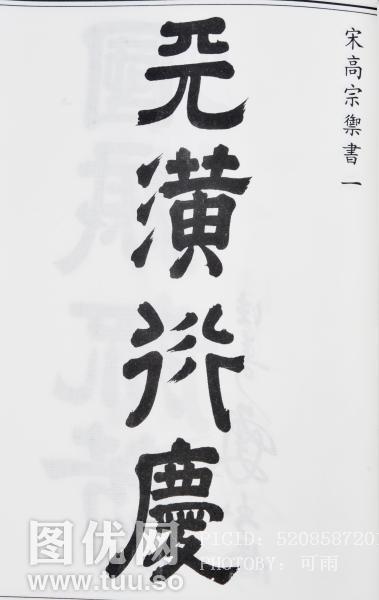 宋高宗禦書一
天潢衍慶
图优网
www.tuu.so
PICID: 520858720
PHOTOBY: 可雨